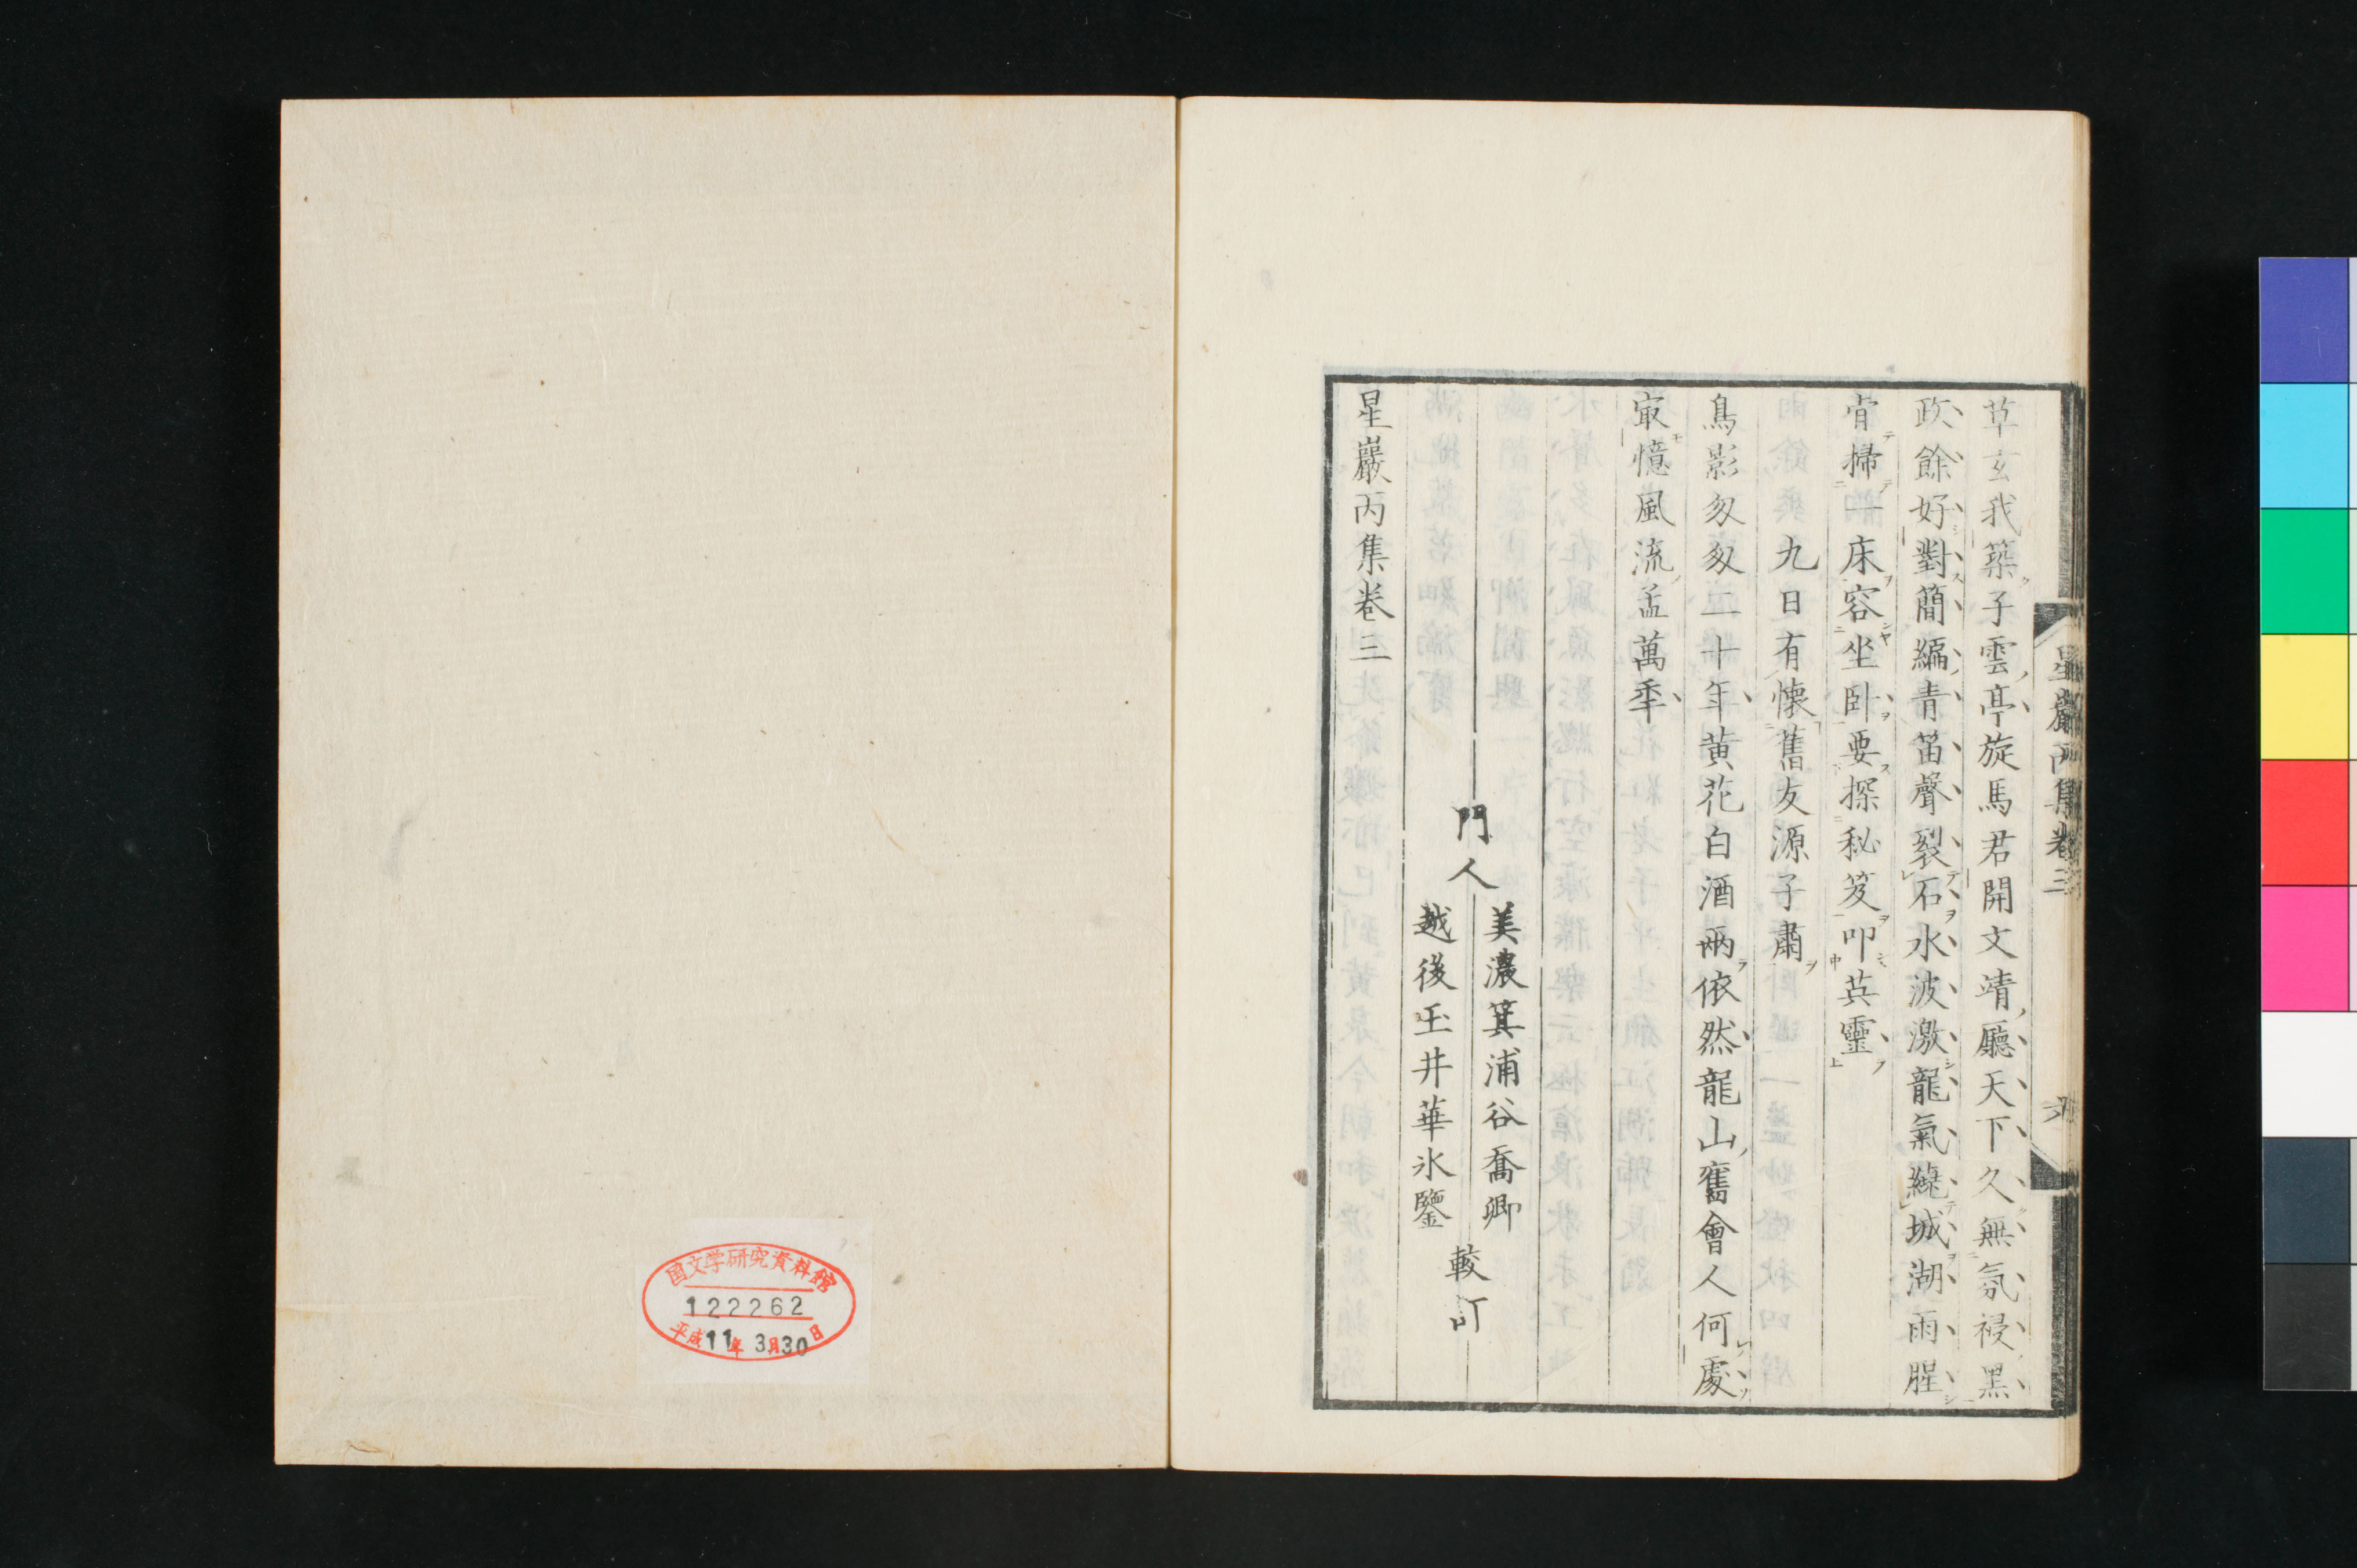 草玄我築子雲亭旋馬君開文靖廳天下久無氛祲黑
政餘好對簡編青笛聲裂石水波激龍氣繞城湖雨腥
肯掃一床容坐臥要探秘笈叩英靈
九日有懷舊友源子肅
鳥影匆匆二十年黃花白酒兩依然龍山舊會人何處
㝡憶風流孟萬秊
門人
美濃箕浦谷喬卿
越後玉井華氷鑒
較訂
星巖丙集卷三
星巖丙集卷三
国文学研究資料館
122262
平成11年3月30日